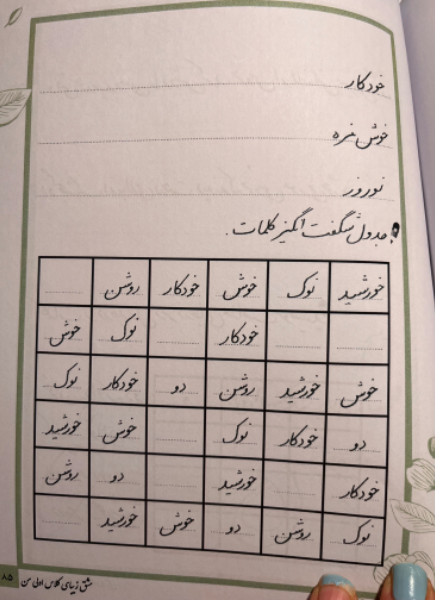 خودکار
خوش مزه
نوروز
جدول شگفت انگیز کلمات.
خورشید نوک خوش خودکار روشن
خودکار نوک خوش
خوش خورشید روشن دو خودکار نوک
دو خودکار نوک خوش خورشید
خودکار خورشید دو روشن
نوک روشن دو خوش خورشید
مشق زیبای کلاس اولی من ۸۵